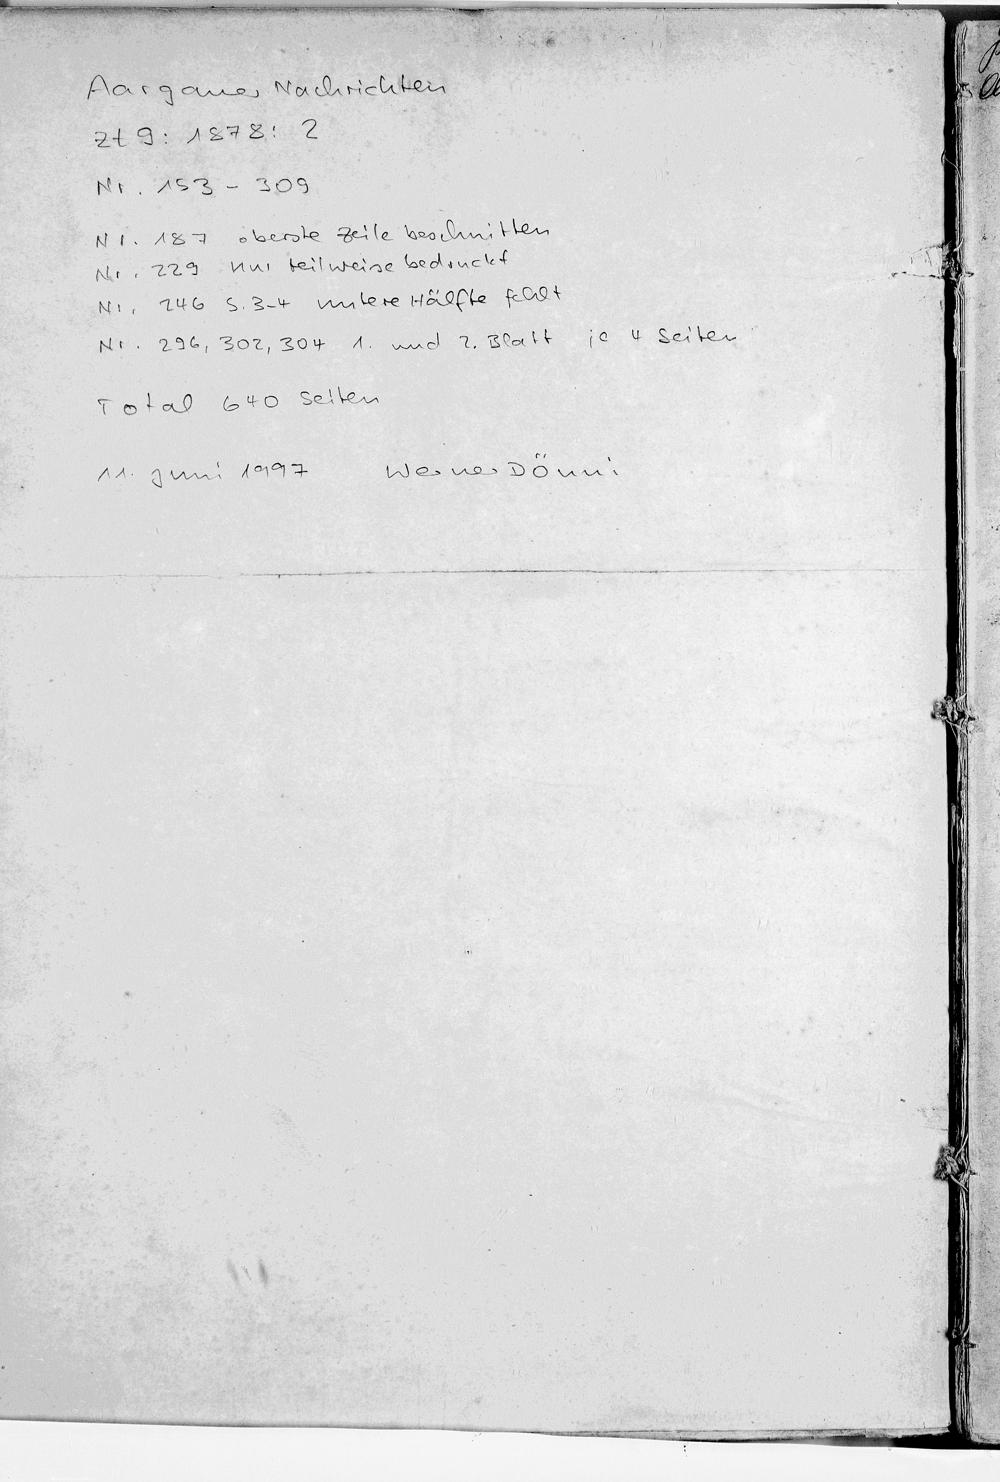 Aargauer Nachrichten
Zt 9: 1878: 2
Nr. 153 - 309
Nr. 187 oberste Zeile beschnitten
Nr. 229 nur teilweise bedruckt
Nr. 246 S. 3-4 untere Hälfte fehlt
Nr. 296, 302, 304 1. und 2. Blatt je 4 Seiten
Total 640 Seiten
11. Juni 1997 Werner Dönni